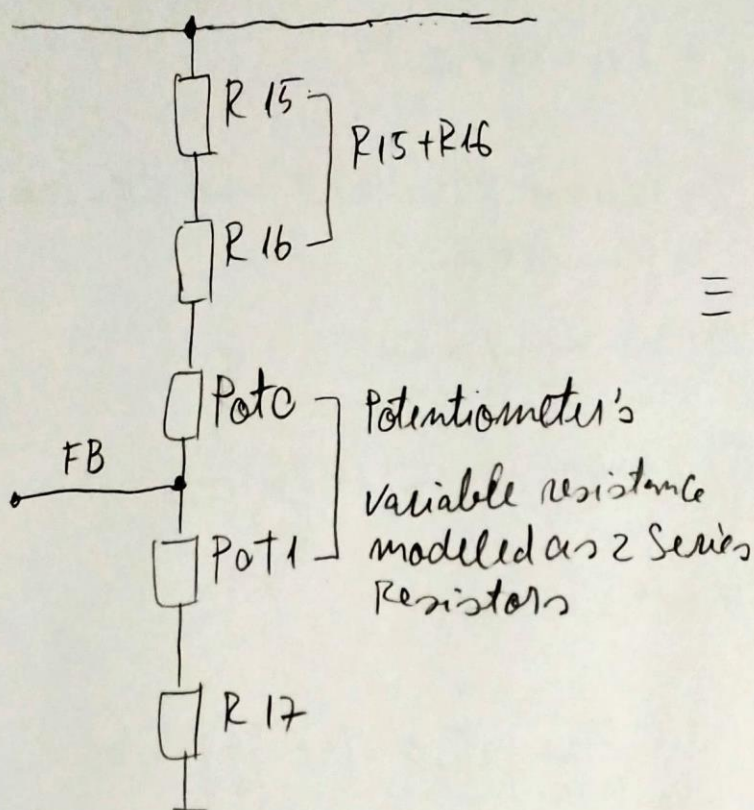 R 15
R15+R16
R 16
Pot0
Potentiometer's
FB
variable resistance
Pot1
modeled as 2 Series
Resistors
R 17